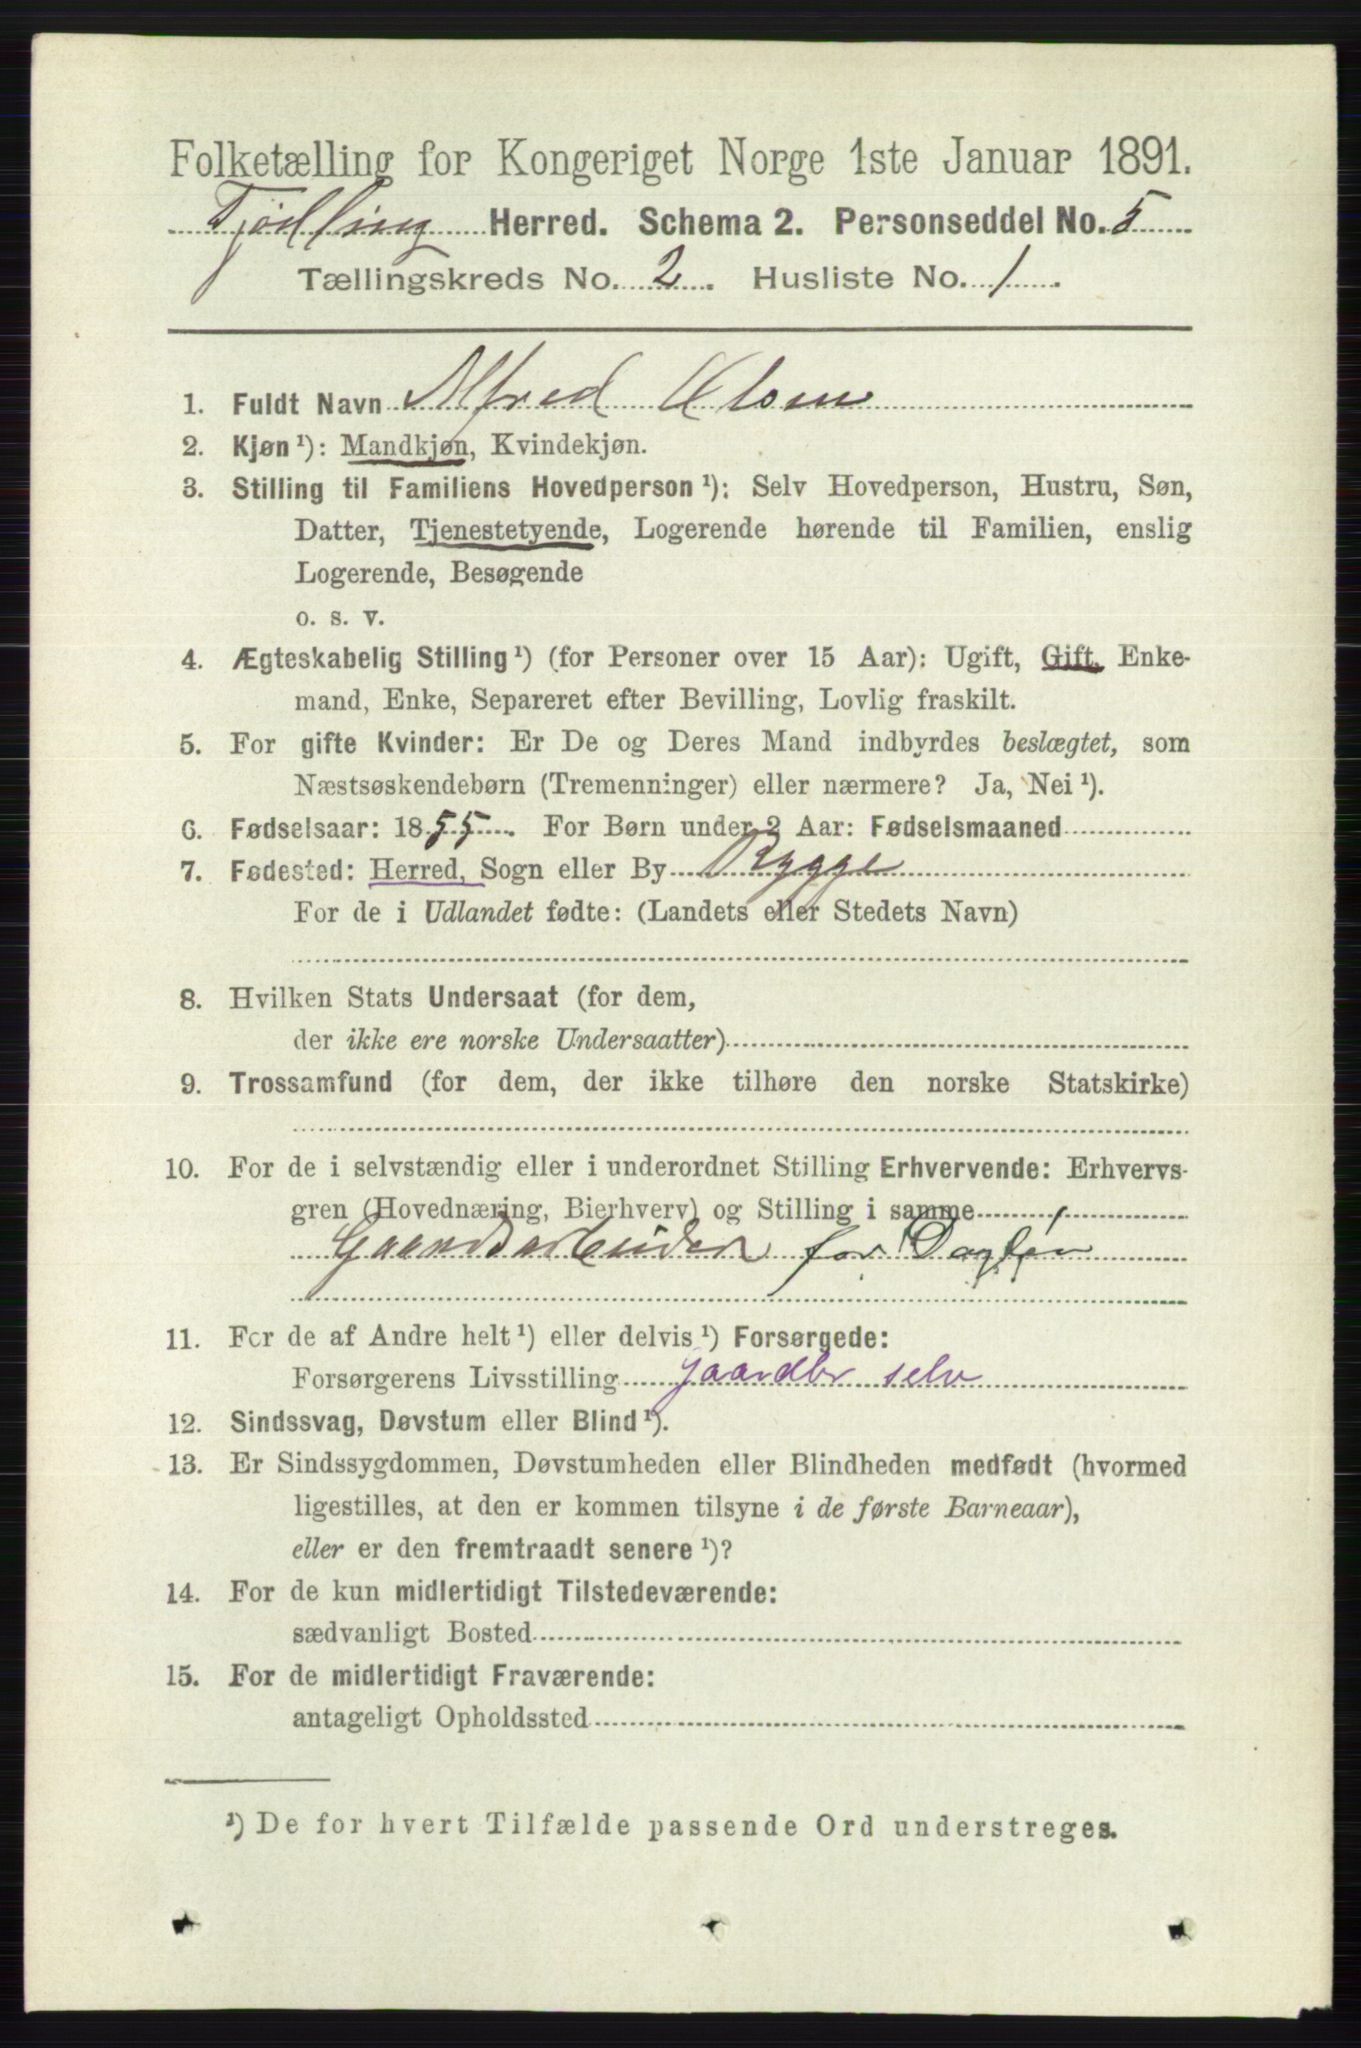 Folketælling for Kongeriget Norge 1ste Januar 1891.
Tjødling Herred. Schema 2. Personseddel No. 5
Tællingskreds No. 2. Husliste No. 1.
1. Fuldt Navn Alfred Olsen
2. Kjøn ¹): Mandkjøn, Kvindekjøn.
3. Stilling til Familiens Hovedperson ¹): Selv Hovedperson, Hustru, Søn,
Datter, Tjenestetyende, Logerende hørende til Familien, enslig
Logerende, Besøgende
o. s. v.
4. Ægteskabelig Stilling ¹) (for Personer over 15 Aar): Ugift, Gift, Enke-
mand, Enke, Separeret efter Bevilling, Lovlig fraskilt.
5. For gifte Kvinder: Er De og Deres Mand indbyrdes beslægtet, som
Næstsøskendebørn (Tremenninger) eller nærmere? Ja, Nei ¹).
6. Fødselsaar: 1855. For Børn under 2 Aar: Fødselsmaaned
7. Fødested: Herred, Sogn eller By Rygge
For de i Udlandet fødte: (Landets eller Stedets Navn)
8. Hvilken Stats Undersaat (for dem,
der ikke ere norske Undersaatter)
9. Trossamfund (for dem, der ikke tilhøre den norske Statskirke)
10. For de i selvstændig eller i underordnet Stilling Erhvervende: Erhvervs-
gren (Hovednæring, Bierhverv) og Stilling i samme
Gaardsarbeider for Dagløn
11. For de af Andre helt ¹) eller delvis ¹) Forsørgede:
Forsørgerens Livsstilling gaardbr selv
12. Sindssvag, Døvstum eller Blind ¹).
13. Er Sindssygdommen, Døvstumheden eller Blindheden medfødt (hvormed
ligestilles, at den er kommen tilsyne i de første Barneaar),
eller er den fremtraadt senere ¹)?
14. For de kun midlertidigt Tilstedeværende:
sædvanligt Bosted
15. For de midlertidigt Fraværende:
antageligt Opholdssted
¹) De for hvert Tilfælde passende Ord understreges.